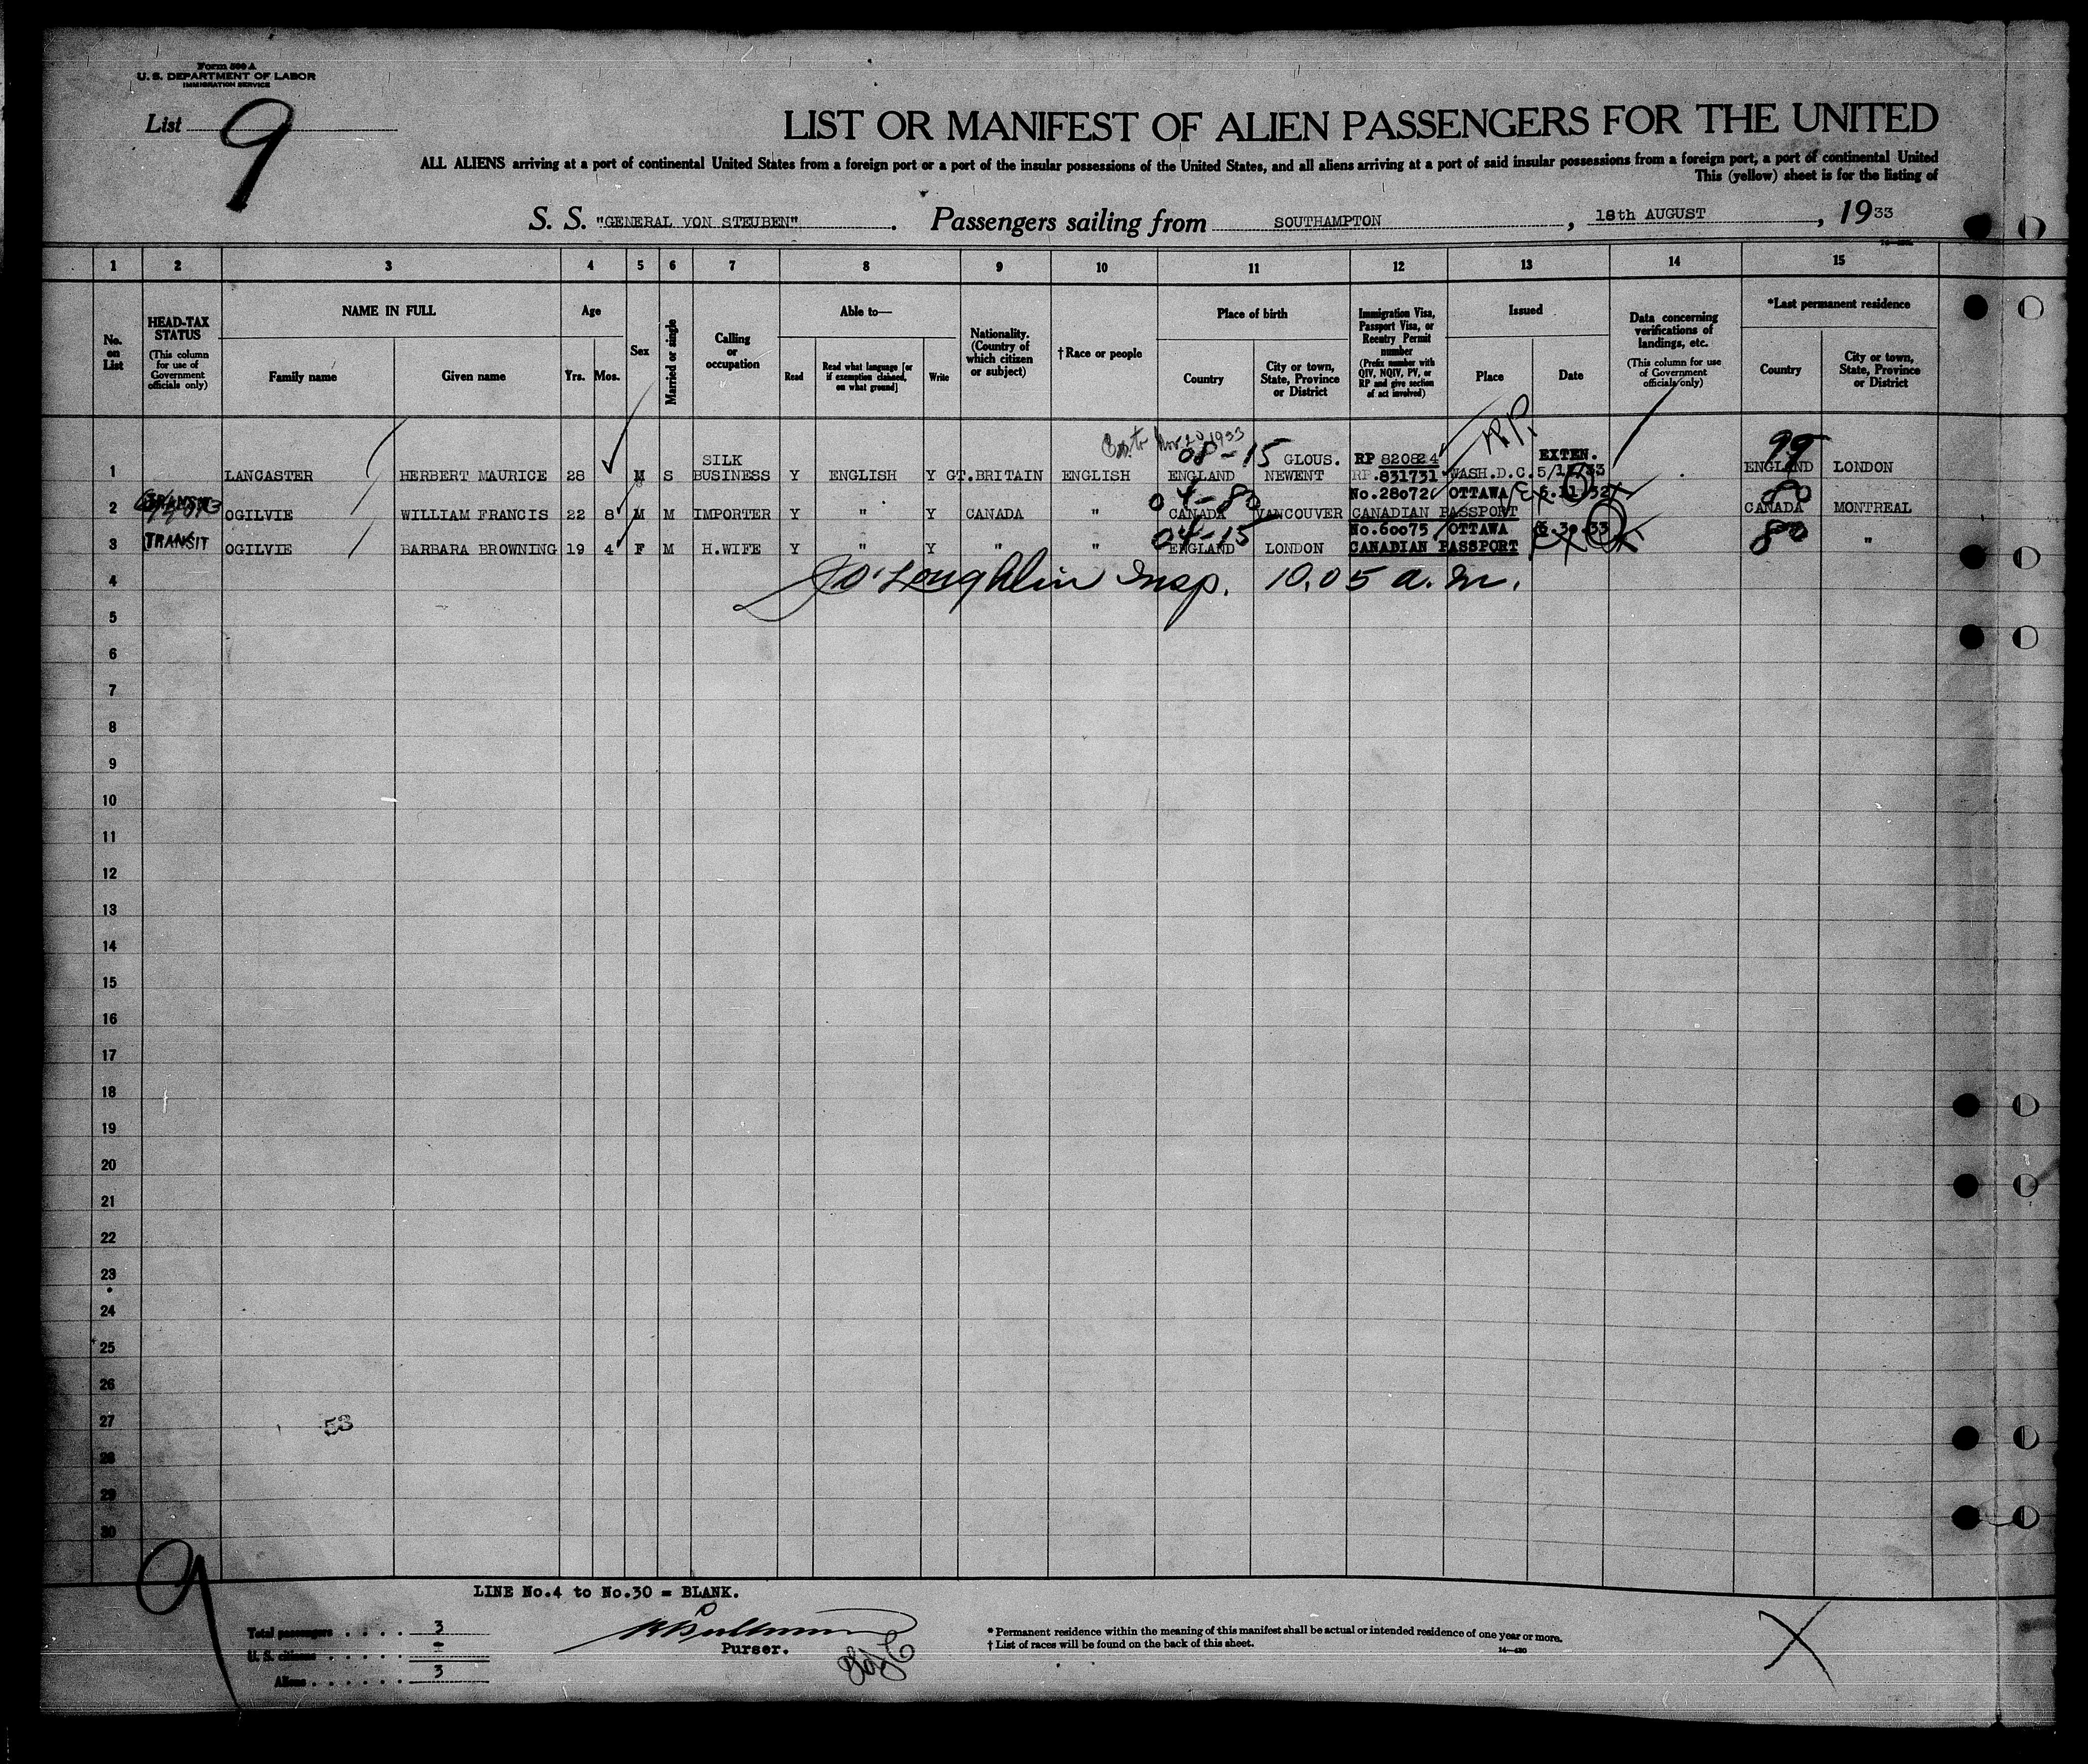 Form 500 A
U. S. DEPARTMENT OF LABOR
IMMIGRATION SERVICE
List 9
LIST OR MANIFEST OF ALIEN PASSENGERS FOR THE UNITED
ALL ALIENS arriving at a port of continental United States from a foreign port or a port of the insular possessions of the United States, and all aliens arriving at a port of said insular possessions from a foreign port, a port of continental United
This (yellow) sheet is for the listing of
S. S. "GENERAL VON STEUBEN". Passengers sailing from SOUTHAMPTON, 18th AUGUST, 1933
1 2 3 4 5 6 7 8 9 10 11 12 13 14 15
No. on List
HEAD-TAX STATUS (This column for use of Government officials only)
NAME IN FULL
Family name
Given name
Age
Yrs. Mos.
Sex
Married or single
Calling or occupation
Able to—
Read
Read what language [or if exemption claimed, on what ground]
Write
Nationality. (Country of which citizen or subject)
†Race or people
Place of birth
Country
City or town, State, Province or District
Immigration Visa, Passport Visa, or Reentry Permit number (Prefix number with QIV, NQIV, PV, or RP and give section of act involved)
Issued
Place
Date
Data concerning verifications of landings, etc. (This column for use of Government officials only)
*Last permanent residence
Country
City or town, State, Province or District
Nov. 20 1933
08-15 R.P. 99
SILK GLOUS. RP 820824 EXTEN.
1 LANCASTER HERBERT MAURICE 28 M S BUSINESS Y ENGLISH Y GT.BRITAIN ENGLISH ENGLAND NEWENT RP.831731 WASH.D.C. ENGLAND LONDON
TRANSIT 04-80 No.28072 OTTAWA 80
2 OGILVIE WILLIAM FRANCIS 22 8 M M IMPORTER Y " Y CANADA " CANADA VANCOUVER CANADIAN PASSPORT CANADA MONTREAL
TRANSIT 04-15 No.60075 OTTAWA 80
3 OGILVIE BARBARA BROWNING 19 4 F M H.WIFE Y " Y " " ENGLAND LONDON CANADIAN PASSPORT "
4 J O'Loughlin Insp. 10.05 a.m.
5
6
7
8
9
10
11
12
13
14
15
16
17
18
19
20
21
22
23
24
25
26
27 53
28
29
30
9
LINE No.4 to No.30 = BLANK.
Total passengers 3
U. S. citizens -
Aliens 3
Purser.
* Permanent residence within the meaning of this manifest shall be actual or intended residence of one year or more.
† List of races will be found on the back of this sheet.
14—430